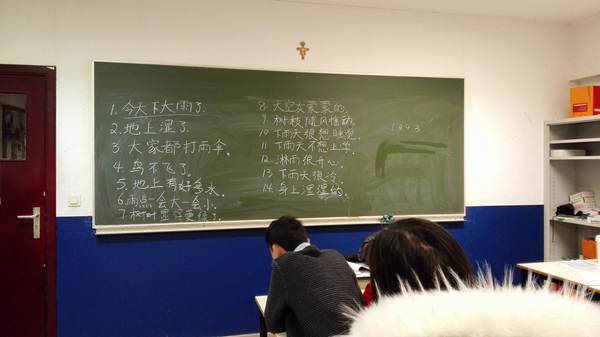 1. 今天下大雨了
2. 地上湿了.
3 大家都打雨伞.
4 鸟不飞了.
5. 地上有好多水.
6. 雨点一会大一会小.
7. 树叶显得更绿了.
8. 天空灰蒙蒙的.
9. 树枝随风摆动.
10. 下雨天很想睡觉.
11. 下雨天不想上学.
12. 淋雨很开心.
13. 下雨天很冷.
14. 身上湿湿的.
1843